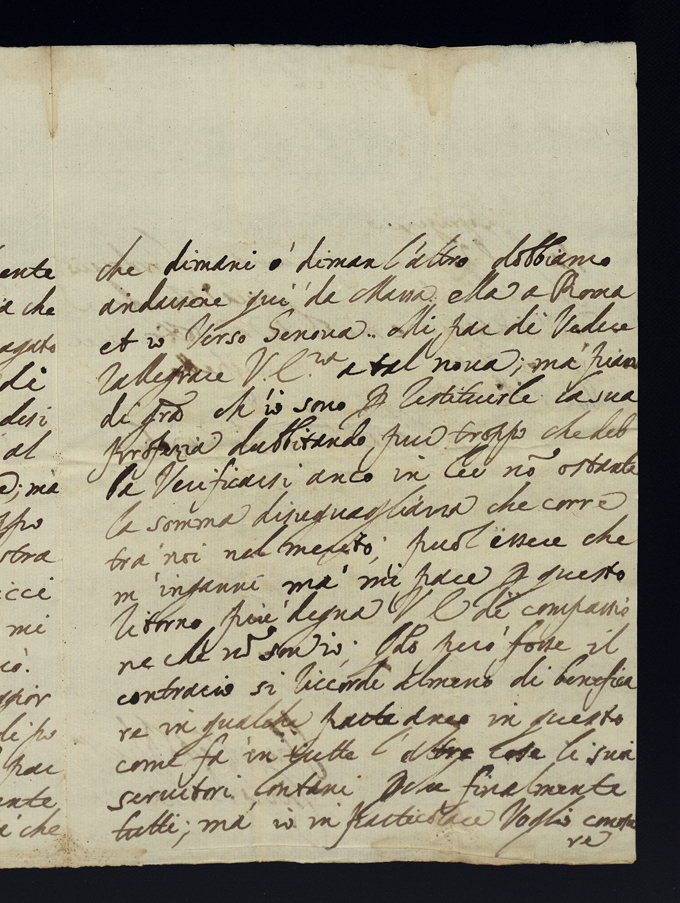 ente
a che
agato
di
disi
al
ma
ppo
stra
icci
mi
co.
di po
pai
ente
che
che dimani ó diman l'altro dobbiamo
andarcie qui da Massa, ella a Roma
et io Verso Genova. Mi par di Vedere
rallegrare V.S. a tal nova; má pian
di grã ch'io sono p restituirle la sua
dubbitando pur troppo che deb
ba Verificarsi anco in lei nõ ostante
la somma diseguaglianza che corre
trá noi nel merito; puol essere che
m'inganni má mi pare p questo
ritorno piú degna V S di compassio
ne che nõ son io. Qdo peró fosse il
contrario si ricordi almeno di benefica
re in qualche parte anco in questo
come fá in tutte l'altre cose li suoi
servitori lontani p finalmente
tutti; má io in particolare Voglio
re